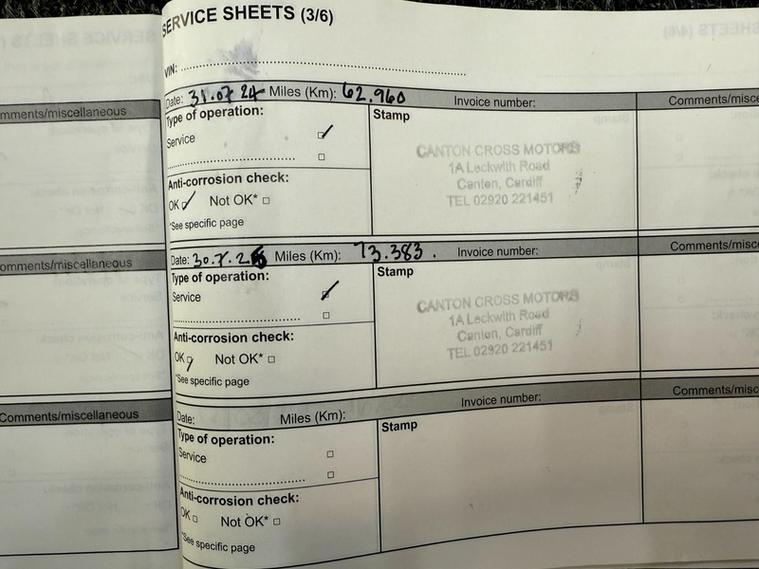 SERVICE SHEETS (3/6)
VIN:
Date: 31.07 24 Miles (Km): 62.960 Invoice number:
Comments/misce
Type of operation:
Service
Anti-corrosion check:
OK Not OK*
*See specific page
Stamp
CANTON CROSS MOTORS
1A Leckwith Road
Canton, Cardiff
TEL 02920 221451
Date: 30.7.25 Miles (Km): 73.383. Invoice number:
Comments/misce
Type of operation:
Service
Anti-corrosion check:
OK Not OK*
*See specific page
Stamp
CANTON CROSS MOTORS
1A Leckwith Road
Canton, Cardiff
TEL 02920 221451
Date: Miles (Km): Invoice number:
Comments/misc
Type of operation:
Service
Anti-corrosion check:
OK Not OK*
*See specific page
Stamp
mments/miscellaneous
omments/miscellaneous
Comments/miscellaneous